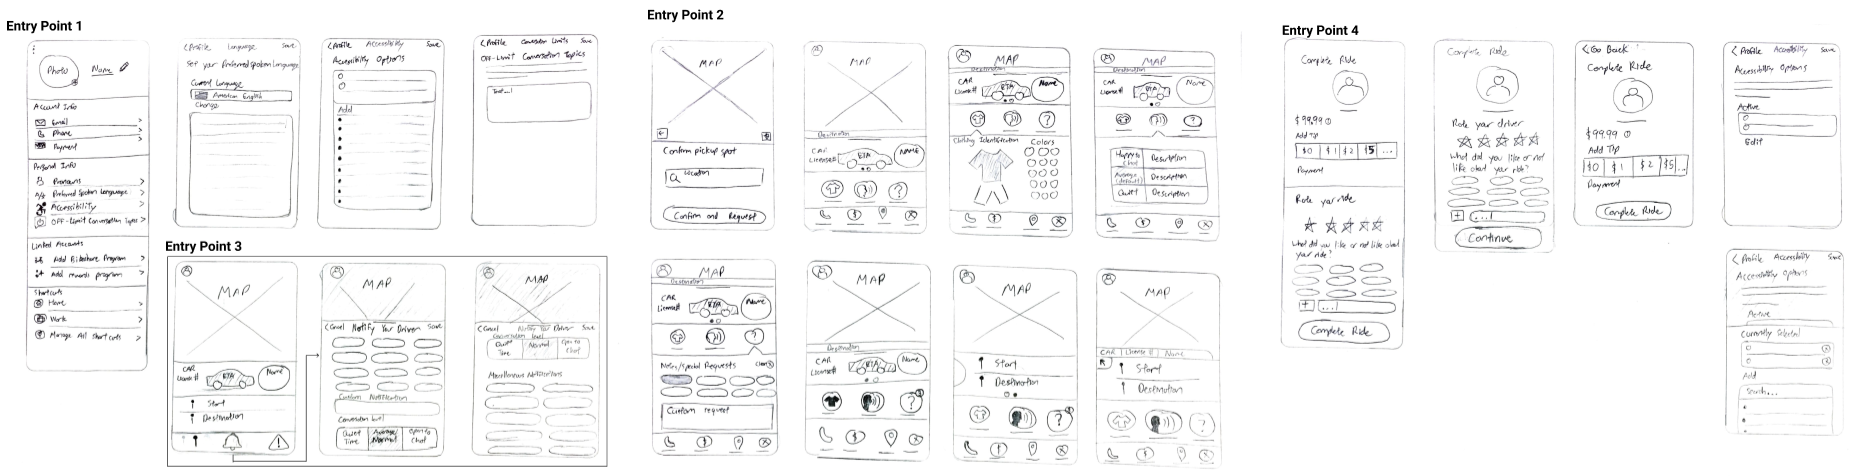 Entry Point 1
Photo
Name
Account Info
Email
Phone
Payment
Personal Info
Pronouns
Preferred Spoken Language
Accessibility
OFF-Limit Conversation Topics
Linked Accounts
Add Rideshare Program
Add rewards program
Shortcuts
Home
Work
Manage All Shortcuts
<Profile Language Save
Set your Preferred spoken Language
Current Language
American English
Change
<Profile Accessibility Save
Accessibility Options
Add
<Profile Conversation Limits Save
OFF-Limit Conversation Topics
Text...|
Entry Point 3
MAP
CAR
License#
ETA
Name
Start
Destination
MAP
<Cancel Notify Your Driver Save
Custom Notification
Conversation level
Quiet Time
Average/Normal
Open to Chat
MAP
<Cancel Notify Your Driver Save
Conversation level
Quiet Time
Normal
Open to Chat
Miscellaneous Notifications
Entry Point 2
MAP
Confirm pickup spot
Location
Confirm and Request
MAP
Destination
CAR
License#
ETA
NAME
MAP
Destination
CAR
License#
ETA
Name
Clothing Identification
Colors
MAP
Destination
CAR
License#
ETA
Name
Happy to Chat
Description
Average (default)
Description
Quiet
Description
MAP
Destination
CAR
License#
ETA
Name
?
Notes/Special Requests
Custom request
MAP
Destination
CAR
License#
ETA
Name
?
MAP
Start
Destination
?
MAP
CAR License # Name
Start
Destination
?
Entry Point 4
Complete Ride
$99.99
Add Tip
$0 $1 $2 $5 ...
Payment
Rate your ride
What did you like or not like about your ride?
+ ...|
Complete Ride
Complete Ride
Rate your driver
What did you like or not like about your ride?
+ ...|
Continue
<Go Back
Complete Ride
$99.99
Add Tip
$0 $1 $2 $5...
Payment
Complete Ride
<Profile Accessibility Save
Accessibility Options
Active
Edit
<Profile Accessibility Save
Accessibility Options
Active
Currently Selected
Add
Search...